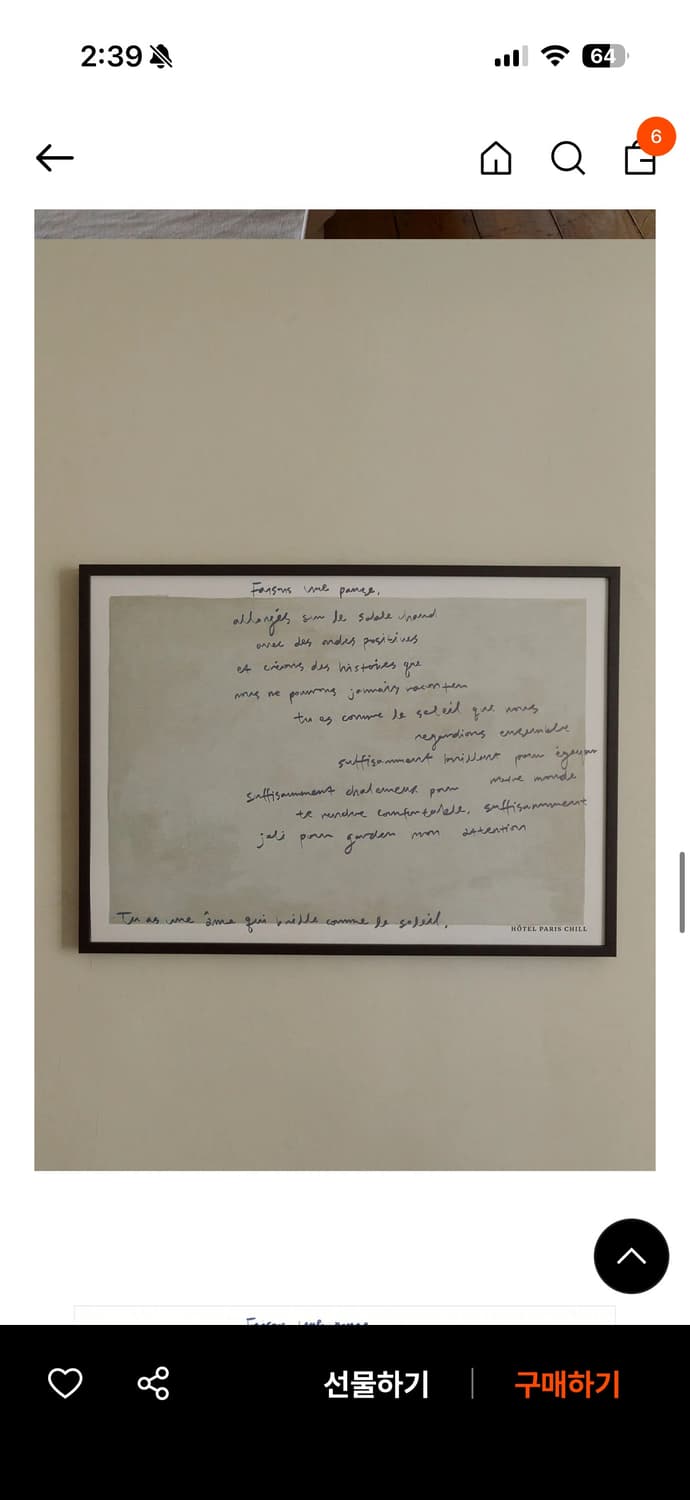 2:39
64
6
Faisons une pause,
allongés sur le sable chaud
avec des ondes positives
et créons des histoires que
nous ne pourrons jamais raconter
tu es comme le soleil que nous
regardions ensemble
suffisamment brillant pour égayer
notre monde
suffisamment chaleureux pour
te rendre confortable, suffisamment
joli pour garder mon attention
Tu as une âme qui brille comme le soleil.
HÔTEL PARIS CHILL
선물하기
구매하기